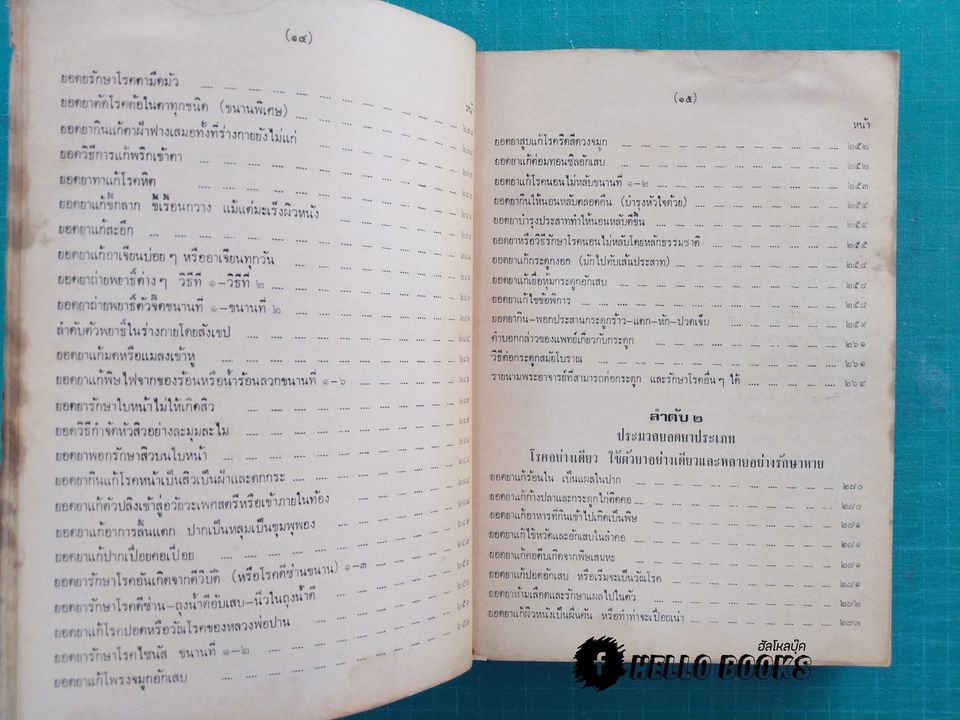 (๑๔)
หน้า
ยอดยรักษาโรคตามืดมัว
ยอดยาตัดโรคต้อในตาทุกชนิด (ขนานพิเศษ)
ยอดยากินแก้ตาฝ้าฟางเสมอทั้งที่ร่างกายยังไม่แก่
ยอดวิธีการแก้พริกเข้าตา
ยอดยาทาแก้โรคหิด
ยอดยาแก้ขี้กลาก ขี้เรื้อนกวาง แม้แต่มะเร็งผิวหนัง
ยอดยาแก้สะอึก
ยอดยาแก้อาเจียนบ่อยๆ หรืออาเจียนทุกวัน
ยอดยาถ่ายพยาธิ์ต่างๆ วิธีที่ ๑-วิธีที่ ๒
ยอดยาถ่ายพยาธิ์ตัวจี๊ดขนานที่ ๑-ขนานที่ ๒
ลำดับตัวพยาธิ์ในร่างกายโดยสังเขป
ยอดยาแก้มดหรือแมลงเข้าหู
ยอดยาแก้พิษไฟจากของร้อนหรือน้ำร้อนลวกขนานที่ ๑-๖
ยอดยารักษาใบหน้าไม่ให้เกิดสิว
ยอดวิธีกำจัดหัวสิวอย่างละมุมละไม
ยอดยาพอกรักษาสิวบนใบหน้า
ยอดยากินแก้โรคหน้าเป็นสิวเป็นฝ้าและตกกระ
ยอดยาแก้ตัวปลิงเข้าสู่อวัยวะเพศสตรีหรือเข้าภายในท้อง
ยอดยาแก้อาการลิ้นแตก ปากเป็นหลุมเป็นขุมพุพอง
ยอดยาแก้ปากเปื่อยคอเปื่อย
ยอดยารักษาโรคอันเกิดจากดีวิบัติ (หรือโรคดีซ่านขนาน) ๑-๓
ยอดยารักษาโรคดีซ่าน-ถุงน้ำดีอับเสบ-นิ่วในถุงน้ำดี
ยอดยาแก้โรคปอดหรือวัณโรคของหลวงพ่อปาน
ยอดยารักษาโรคไซนัส ขนานที่ ๑-๒
ยอดยาแก้โพรงจมูกอักเสบ
(๑๕)
หน้า
ยอดยาสูบแก้โรคริดสีดวงจมูก ๒๕๒
ยอดยาแก้ต่อมทอนซิลอักเสบ ๒๕๒
ยอดยาแก้โรคนอนไม่หลับขนานที่ ๑-๒ ๒๕๓
ยอดยากินให้นอนหลับตลอดคืน (บำรุงหัวใจด้วย) ๒๕๔
ยอดยาบำรุงประสาททำให้นอนหลับดีขึ้น ๒๕๔
ยอดยาหรือวิธีรักษาโรคนอนไม่หลับโดยหลักธรรมชาติ ๒๕๕
ยอดยาแก้กระดูกงอก (มักไปทับเส้นประสาท) ๒๕๘
ยอดยาแก้เยื่อหุ้มกระดูกอักเสบ ๒๕๘
ยอดยาแก้ไขข้อพิการ ๒๕๘
ยอดยากิน-พอกประสานกระดูกร้าว-แตก-หัก-ปวดเจ็บ ๒๕๙
คำบอกกล่าวของแพทย์เกี่ยวกับกระดูก ๒๖๑
วิธีต่อกระดูกสมัยโบราณ ๒๖๑
รายนามพระอาจารย์ที่สามารถต่อกระดูก และรักษาโรคอื่นๆ ได้ ๒๖๔
ลำดับ ๒
ประมวลยอดยาประเภท
โรคอย่างเดียว ใช้ตัวยาอย่างเดียวและหลายอย่างรักษาหาย
ยอดยาแก้ร้อนใน เป็นแผลในปาก ๒๗๐
ยอดยาแก้ก้างปลาและกระดูกไก่ติดคอ ๒๗๐
ยอดยาแก้อาหารที่กินเข้าไปเกิดเป็นพิษ ๒๗๑
ยอดยาแก้ไข้หวัดและอักเสบในลำคอ ๒๗๑
ยอดยาแก้คอตีบเกิดจากพิษเสมหะ ๒๗๑
ยอดยาแก้ปอดอักเสบ หรือเริ่มจะเป็นวัณโรค ๒๗๑
ยอดยาห้ามเลือดและรักษาแผลไปในตัว ๒๗๒
ยอดยาแก้ผิวหนังเป็นผื่นคัน หรือทำท่าจะเปื่อยเน่า ๒๗๓
ฮัลโหลบุ๊ค
HELLO BOOKS